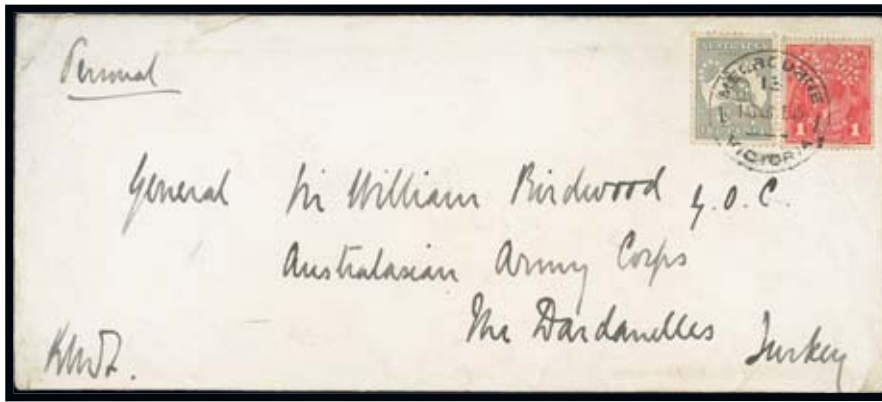 Personal
AUSTRALIA
MELBOURNE
13
VICTORIA
1 1
General Sir William Birdwood G.O.C.
Australasian Army Corps
The Dardanelles Turkey